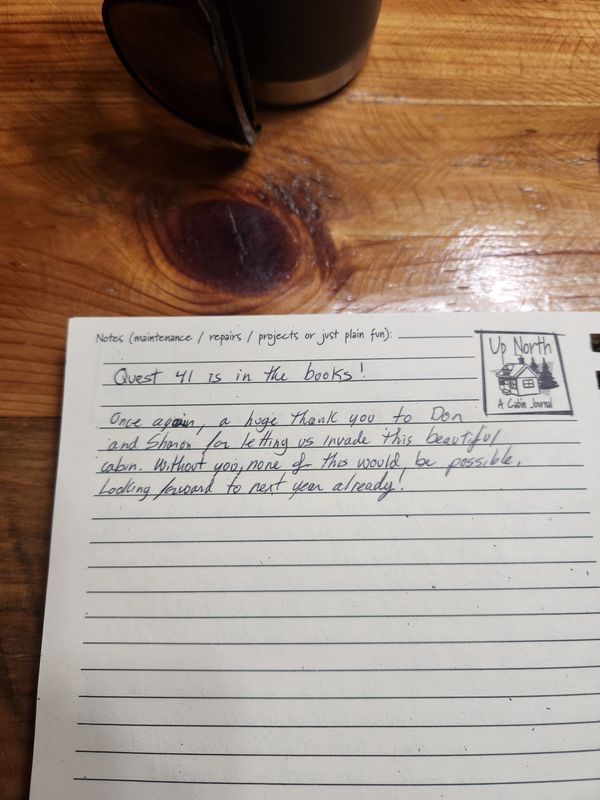 Notes (maintenance / repairs / projects or just plain fun):
Up North
A Cabin Journal
Quest 41 is in the books!
Once again, a huge thank you to Don
and Sharon for letting us invade this beautiful
cabin. Without you, none of this would be possible.
Looking forward to next year already!